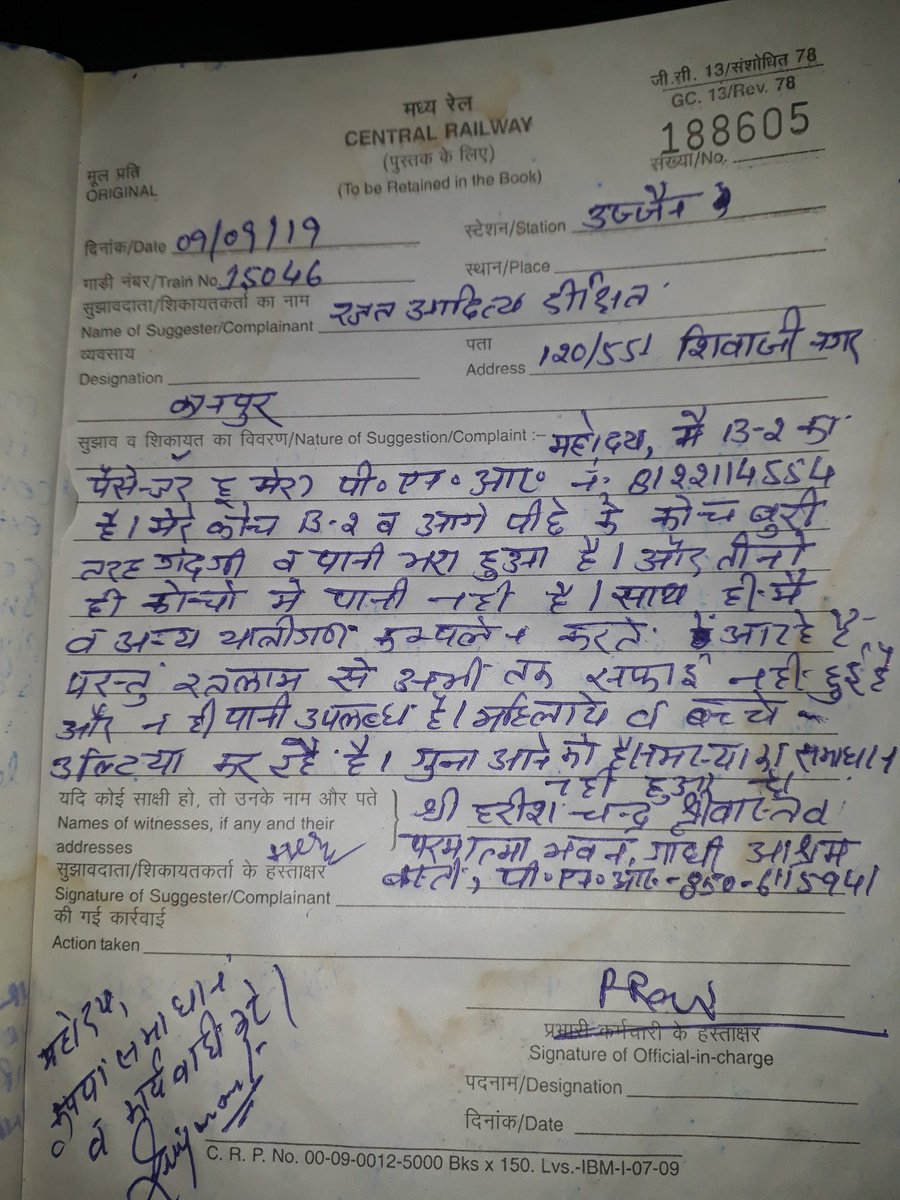 जी.सी. 13/संशोधित 78
GC. 13/Rev. 78
188605
संख्या/No.
मध्य रेल
CENTRAL RAILWAY
(पुस्तक के लिए)
(To be Retained in the Book)
मूल प्रति
ORIGINAL
दिनांक/Date 09/09/19 स्टेशन/Station उज्जैन
गाड़ी नंबर/Train No. 15046 स्थान/Place
सुझावदाता/शिकायतकर्ता का नाम
Name of Suggester/Complainant रजत आदित्य दीक्षित
व्यवसाय पता
Designation Address 120/551 शिवाजी नगर
कानपुर
सुझाव व शिकायत का विवरण/Nature of Suggestion/Complaint :– महोदय, मै B-2 का
पैसेन्जर हू मेरा पी॰ एन॰ आर॰ नं: 8122114554
है। मेरे कोच B-2 व आगे पीछे के कोच बुरी
तरह गंदगी व पानी भरा हुआ है। और तीनो
ही कोचो मे पानी नही है। साथ ही मै
व अन्य यात्रीगण कम्पलेन करते आ रहे है
परन्तु रतलाम से अभी तक सफाई नही हुई है
और न ही पानी उपलब्ध है। महिलाये व बच्चे
उल्टिया कर रहे है। गुना आने को है। समस्या का समाधान
नही हुआ है।
यदि कोई साक्षी हो, तो उनके नाम और पते
Names of witnesses, if any and their
addresses
श्री हरीश चन्द्र श्रीवास्तव
परमात्मा भवन, गांधी आश्रम
बस्ती, पी॰ एन॰ आर॰ - 850-6115941
सुझावदाता/शिकायतकर्ता के हस्ताक्षर
Signature of Suggester/Complainant
की गई कार्रवाई
Action taken
महोदय,
कृपया समाधान
व कार्यवाही करे।
प्रभारी कर्मचारी के हस्ताक्षर
Signature of Official-in-charge
पदनाम/Designation
दिनांक/Date
C. R. P. No. 00-09-0012-5000 Bks x 150. Lvs.-IBM-I-07-09